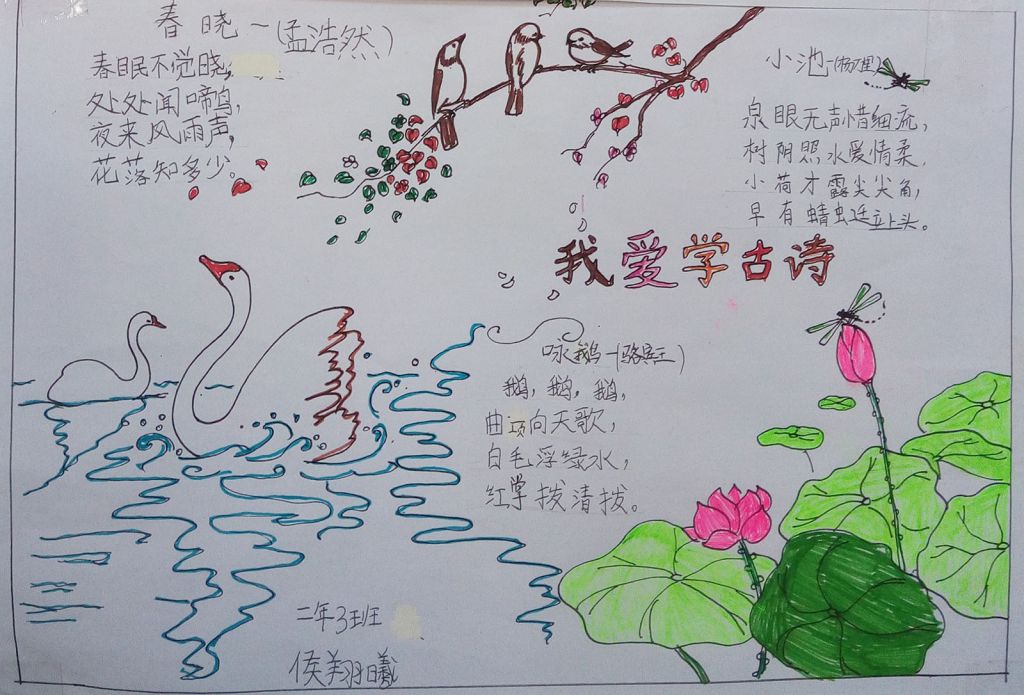 春晓-(孟浩然)
春眠不觉晓,
处处闻啼鸟,
夜来风雨声,
花落知多少。
小池-(杨万里)
泉眼无声惜细流,
树阴照水爱情柔,
小荷才露尖尖角,
早有蜻蜓立上头。
我爱学古诗
咏鹅-(骆宾王)
鹅,鹅,鹅,
曲项向天歌,
白毛浮绿水,
红掌拨清拨。
二年3班
侯翔曦